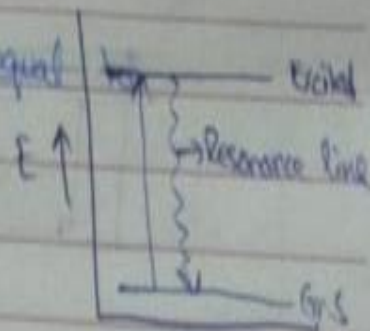 equal
Excited
E ↑
→Resonance line
G.S